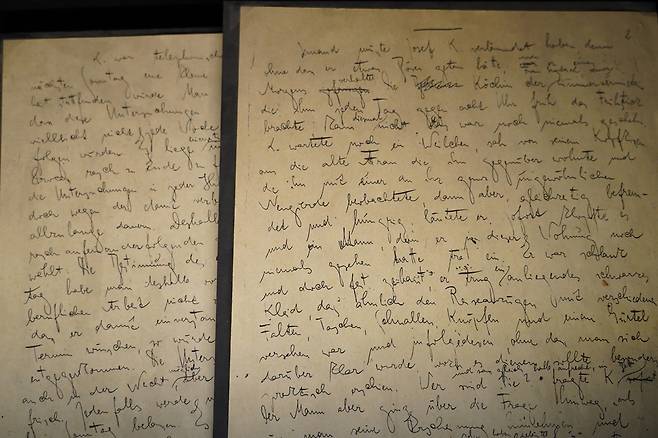 K. war telephonisch
nächsten Sonntag eine kleine
hat stattfinden würde. Man
dass diese Untersuchungen
vielleicht nicht jede Woche
folgen würden. Es liege
Process rasch zu Ende zu
die Untersuchungen in jeder Hi
doch wegen der damit verbun
allzulange dauern. Deshalb
rasch aufeinanderfolgenden
wählt. Die Bestimmung des
tag habe man deshalb vor
beruflichen Arbeit nicht
dass er damit einverstan
Termin wünschen, so würde
entgegenkommen. Die Unters
auch in der Nacht
frisch. Jedenfalls werde
Sonntag belassen. Es
2
Jemand musste Josef K. verläumdet haben, denn
ohne dass er etwas Böses getan hätte, wurde er eines
Morgens gefangen verhaftet. Die Köchin der Zimmervermieterin
die ihm jeden Tag gegen acht Uhr früh das Frühstück
brachte kam diesmal nicht. Das war noch niemals geschehn
K. wartete noch ein Weilchen, sah von seinem Kopfkissen
aus die alte Frau die ihm gegenüber wohnte und
die ihn mit einer an ihr ganz ungewöhnlichen
Neugierde beobachtete, dann aber, gleichzeitig befrem-
det und hungrig, läutete er. Sofort klopfte es
und ein Mann, den er in dieser Wohnung noch
niemals gesehen hatte trat ein. Er war schlank
und doch fest gebaut, er trug ein anliegendes schwarzes
Kleid, das ähnlich den Reiseanzügen mit verschiedenen
Falten, Taschen, Schnallen, Knöpfen und einem Gürtel
versehen war und infolgedessen, ohne dass man sich
darüber klar wurde, wozu es dienen sollte, besonders
praktisch erschien. "Wer sind Sie?" fragte K.
Der Mann aber ging über die Frage hinweg, als
müsse man seine Erscheinung hinnehmen und